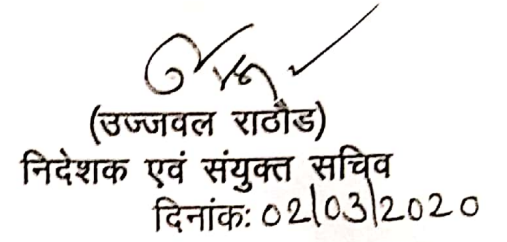 (उज्जवल राठौड)
निदेशक एवं संयुक्त सचिव
दिनांक: 02/03/2020